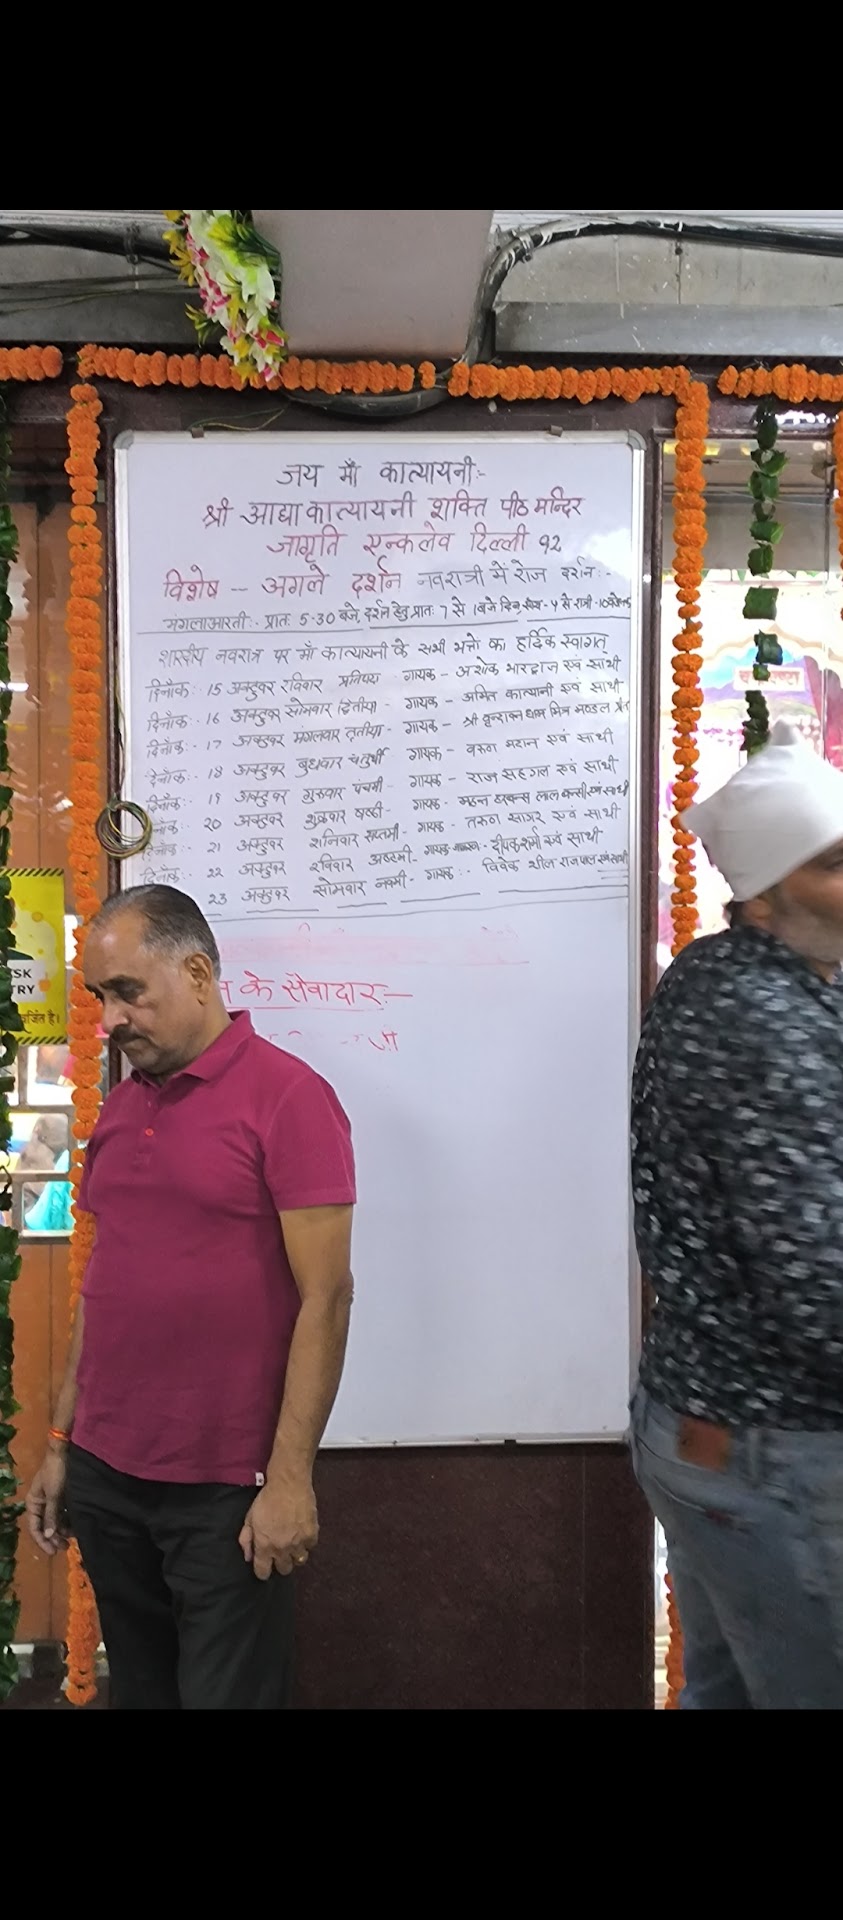 जय माँ कात्यायनी:-
श्री आद्या कात्यायनी शक्ति पीठ मन्दिर
जागृति एन्कलेव दिल्ली 92
विशेष -- अगले दर्शन नवरात्री में रोज दर्शन:-
मंगला आरती:- प्रातः 5-30 बजे, दर्शन हेतु प्रातः 7 से 1 बजे दिन, - 4 से रात्री -10 बजे
शारदीय नवरात्र पर माँ कात्यायनी के सभी भक्तो का हार्दिक स्वागत्
दिनाँक:- 15 अक्टुबर रविवार गायक - अशोक भारद्वाज एवं साथी
दिनाँक:- 16 अक्टुबर सोमवार द्वितीया - गायक - अमित कात्यानी एवं साथी
दिनाँक:- 17 अक्टुबर मंगलवार तृतीया - गायक - श्री वृन्दावन धाम मित्र मण्डल
दिनाँक:- 18 अक्टुबर बुधवार चतुर्थी गायक - वरुण मदान एवं साथी
दिनाँक:- 19 अक्टुबर गुरुवार पंचमी - गायक - राज सहगल एवं साथी
20 अक्टुबर शुक्रवार षष्ठी - गायक - लाल एवं साथी
दिनाँक:- 21 अक्टुबर शनिवार सप्तमी - गायक - तरुण सागर एवं साथी
दिनाँक:- 22 अक्टुबर रविवार अष्टमी - गायक - दीपक शर्मा एवं साथी
23 अक्टुबर सोमवार नवमी - गायक:- विवेक शील राजपाल एवं साथी
के सेवादार:-
जी
SK
RY
वर्जित है।